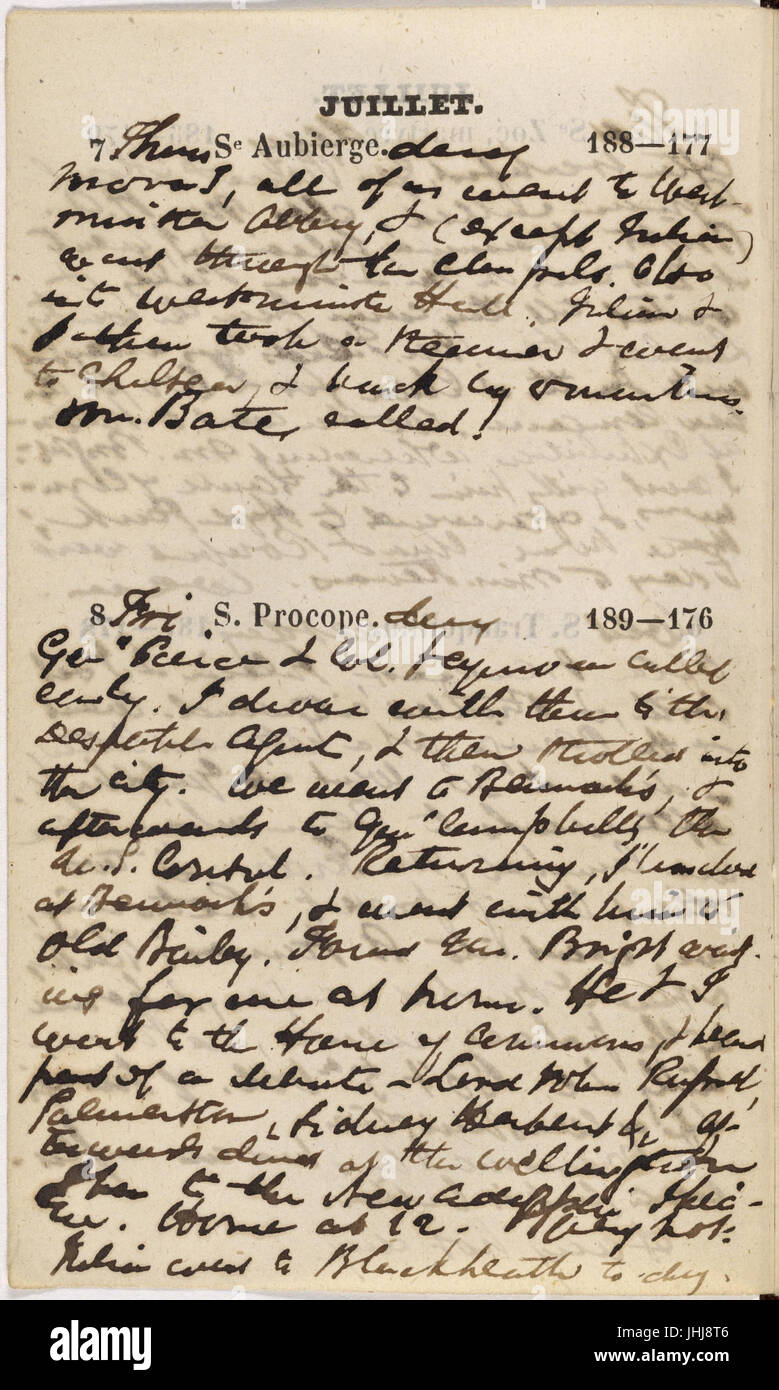 JUILLET.
7 Thurs Se Aubierge. day 188—177
all of us went to West-
minster Abbey, & (except Julian)
went through the Chapels. Also
into Westminster Hall. Julian &
I then took a steamer & went
to Chelsea, & back by omnibus.
Mr. Bates called.
8 Fri S. Procope. day 189—176
Genl Peirce & Col. Seymour called
early. I drove with them to the
Despatch Agent, & then strolled into
the city. We went to Bennoch's, &
afterwards to Genl Campbell's, the
U.S. Consul. Returning, I lunched
at Bennoch's, & went with him to
Old Bailey. Found Mr. Bright wait-
ing for me at home. He & I
went to the House of Commons, & heard
part of a debate – Lord John Russell,
Palmerston, Sidney Herbert &c. Af-
terwards dined at the Wellington
then to the New Adelphi
Home at 12. Very hot.
Julian went to Blackheath to-day.
alamy
Image ID: JHJ8T6
www.alamy.com